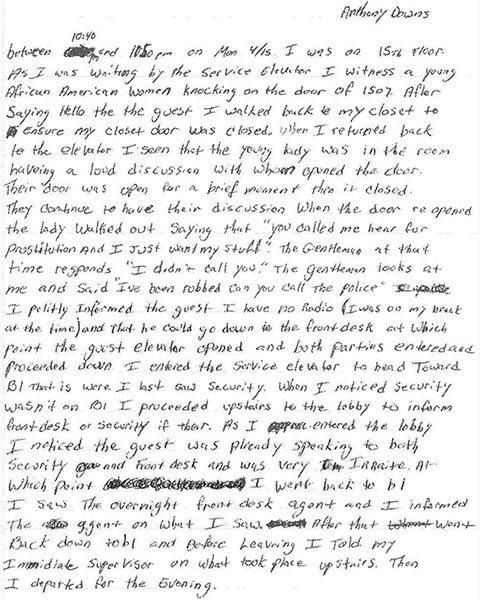 Anthony Downs
10:40
between pm and 10:50pm on Mon 4/15 I was on 15th Floor.
As I was waitong by the Service Elevator I witness a young
African American Women knocking on the door of 1507. After
Saying Hello the the guest I walked back to my closet to
ensure my closet door was closed. When I returned back
to the elevator I seen that the young lady was in the room
haveing a loud discussion with whom opened the door.
Their door was open for a brief moment then it closed.
They continue to have their discussion When the door re opened
the lady walked out Saying that "you called me hear for
prostitution And I Just want my stuff". The Gentleman at that
time responds "I didn't call you." The gentleman looks at
me and Said "I've been robbed can you call the police"
I politly Informed the guest I have no Radio (I was on my break
at the time) and that he could go down to the front desk at which
point the guest elevator opened and both parties entered and
proceeded down. I entered the service elevator to head Toward
B1 That is were I last saw security. When I noticed security
wasn't on B1 I proceeded upstairs to the lobby to inform
front desk or security if their. As I entered the lobby
I noticed the guest was already speaking to both
Security and front desk and was very Irraite. At
which point I went back to b1
I saw The overnight front desk agent and I informed
The agent on what I saw. After that went
Back down to b1 and Before Leaveing I Told my
Immidiate Supervisor on what took place upstairs. Then
I departed for the Evening.